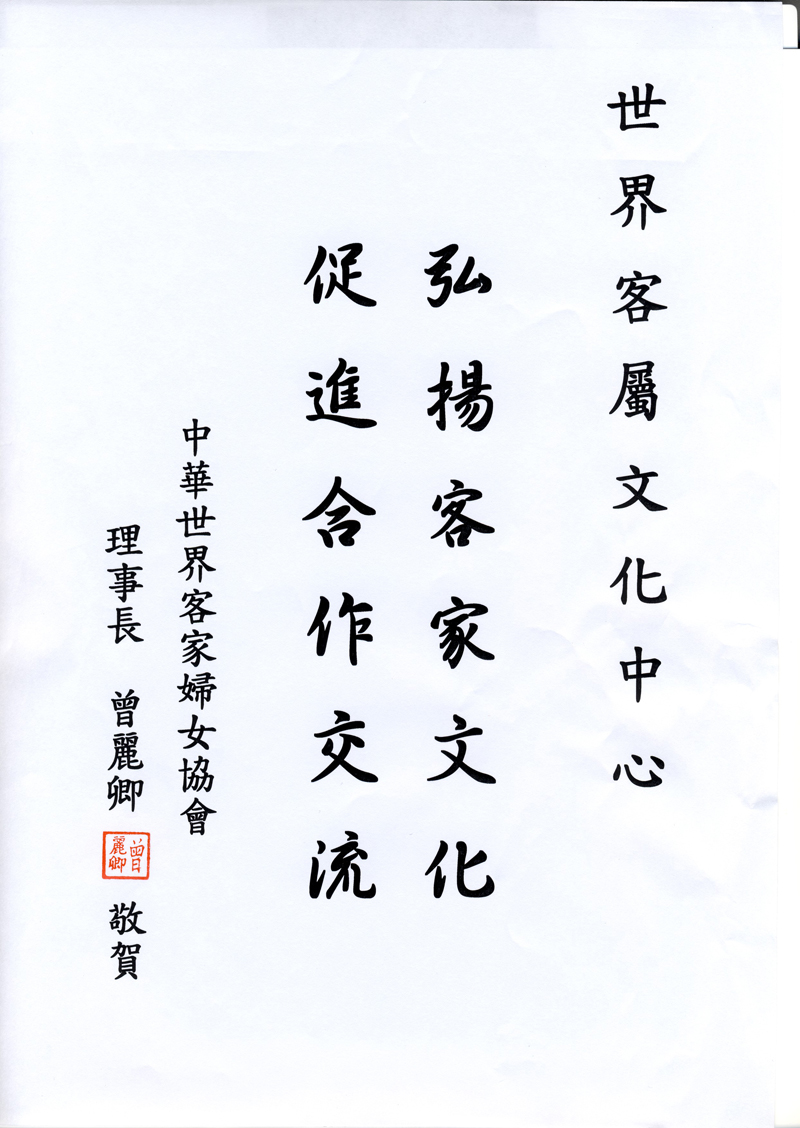 世界客屬文化中心
弘揚客家文化
促進合作交流
中華世界客家婦女協會
理事長 曾麗卿 曾麗卿 敬賀